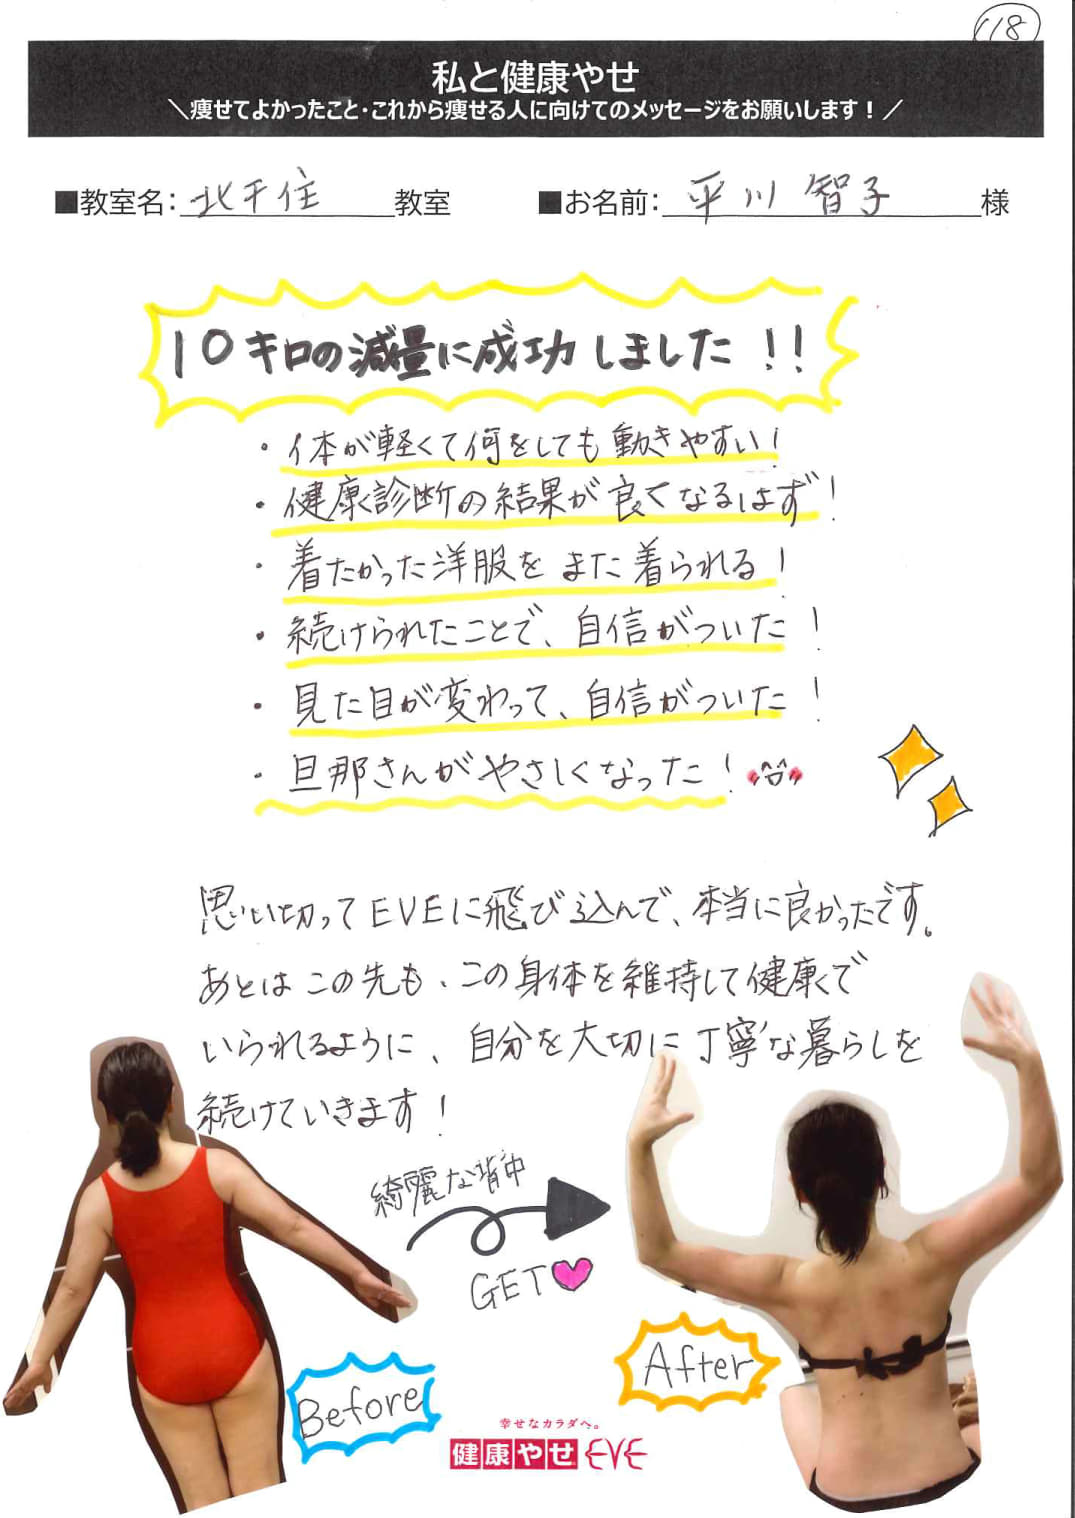 118
私と健康やせ
＼痩せてよかったこと・これから痩せる人に向けてのメッセージをお願いします！／
■教室名：北千住教室
■お名前：平川 智子様
10キロの減量に成功しました!!
・体が軽くて何をしても動きやすい!
・健康診断の結果が良くなるはず!
・着たかった洋服をまた着られる!
・続けられたことで、自信がついた!
・見た目が変わって、自信がついた!
・旦那さんがやさしくなった!
思い切ってEVEに飛び込んで、本当に良かったです。
あとはこの先も、この身体を維持して健康で
いられるように、自分を大切に丁寧な暮らしを
続けていきます!
綺麗な背中
GET
Before
After
幸せなカラダへ。
健康やせEVE